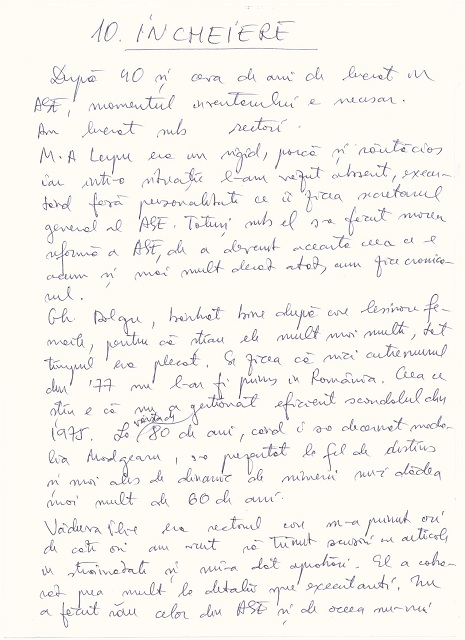 10. ÎNCHEIERE
După 40 și ceva de ani de lucrat în
ASE, momentul inventarului e necesar.
Am lucrat sub rectori.
M. A Lupu era un rigid, parcă și răutăcios
iar într-o situație l-am văzut absent, execu-
tând fără personalitate ce îi zicea secretarul
general al ASE. Totuși sub el s-a făcut marea
reformă a ASE, de a devenit aceasta ceea ce e
acum și mai mult decât atât, cum zice cronica-
rul.
Gh. Dolgu, bărbat bine după care leșinau fe-
meile, pentru că știau ele mult mai multe, tot
timpul era plecat. Se zicea că nici cutremurul
din '77 nu l-ar fi prins în România. Ceea ce
știu e că nu a gestionat eficient scandalul din
1975. La vârsta de 80 de ani, când i s-a decernat meda-
lia Madgearu, s-a prezentat la fel de distins
și mai ales de dinamic de nimeni nu-i dădea
mai mult de 60 de ani.
Văduva Ilie era rectorul care m-a primit ori
de câte ori am vrut să trimit scrisori cu articole
în străinătate și mi-a dat aprobări. El a cobo-
rât prea mult la detalii spre executanți. Nu
a făcut rău celor din ASE și de aceea nu-mi